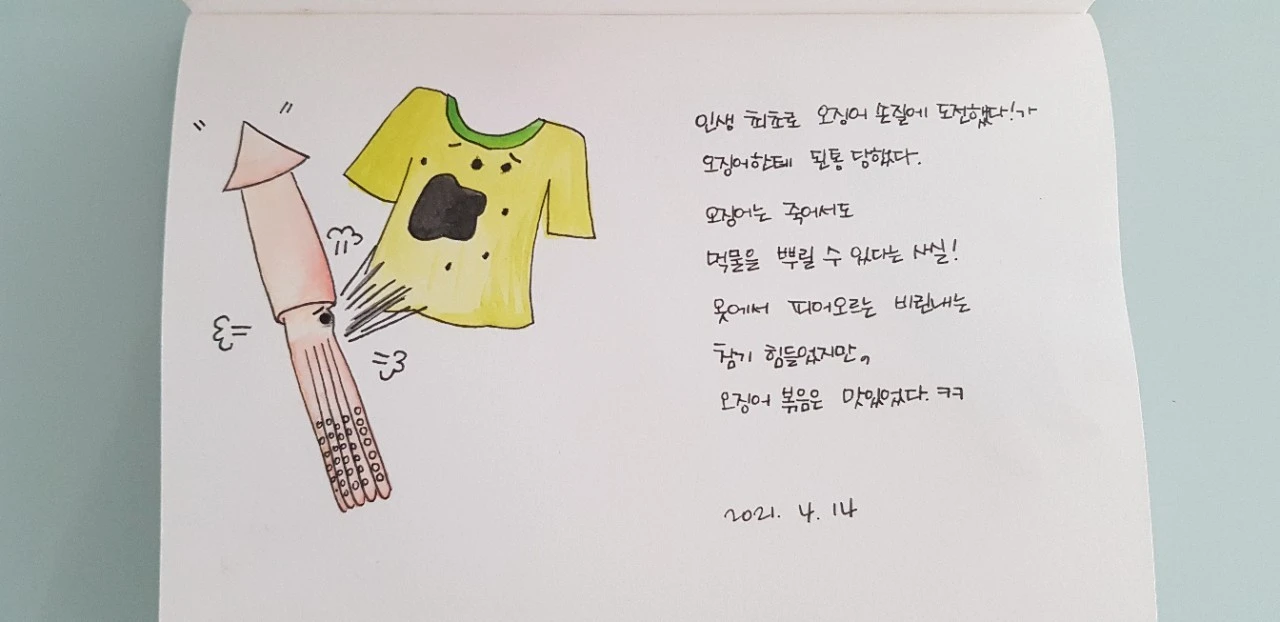 인생 최초로 오징어 손질에 도전했다!가
오징어한테 된통 당했다.
오징어는 죽어서도
먹물을 뿌릴 수 있다는 사실!
옷에서 피어오르는 비린내는
참기 힘들었지만,
오징어 볶음은 맛있었다. ㅋㅋ
2021. 4. 14